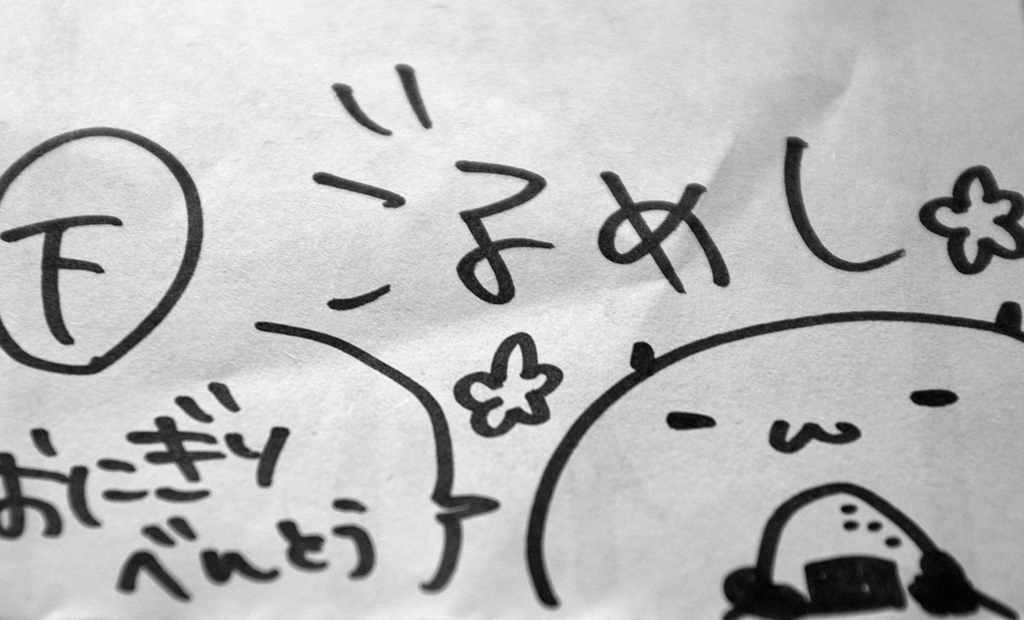 下
めし
おにぎり
べんとう